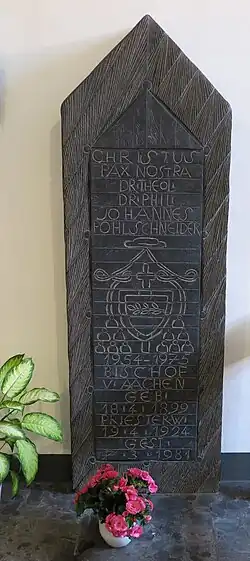 CHRISTUS
PAX NOSTRA
DR·THEOL·
DR·PHIL·
JOHANNES
POHLSCHNEIDER
1954-1974
BISCHOF
V·AACHEN
GEB·
18·4·1899
PRIESTERW·
19·4·1924
GEST·
7·3·1981